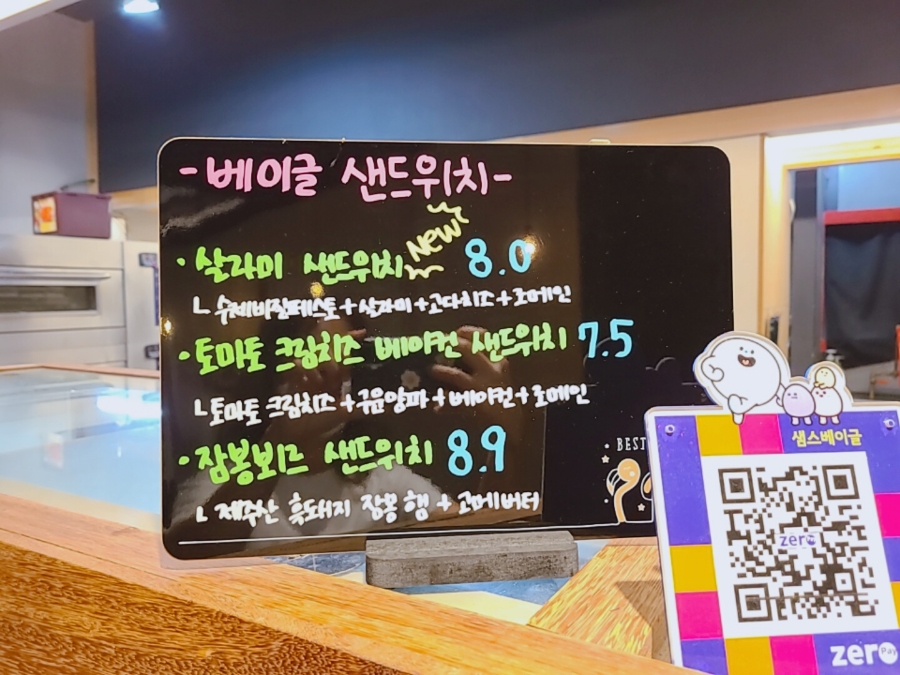 -베이글 샌드위치-
·살라미 샌드위치 New 8.0
ㄴ 수제바질페스토+살라미+고다치즈+로메인
·토마토 크림치즈 베이컨 샌드위치 7.5
ㄴ토마토 크림치즈+구운양파+베이컨+로메인
·잠봉뵈르 샌드위치 8.9
ㄴ 제주산 흑돼지 잠봉 햄 + 고메버터
BEST
샘스베이글
zero
zero Pay